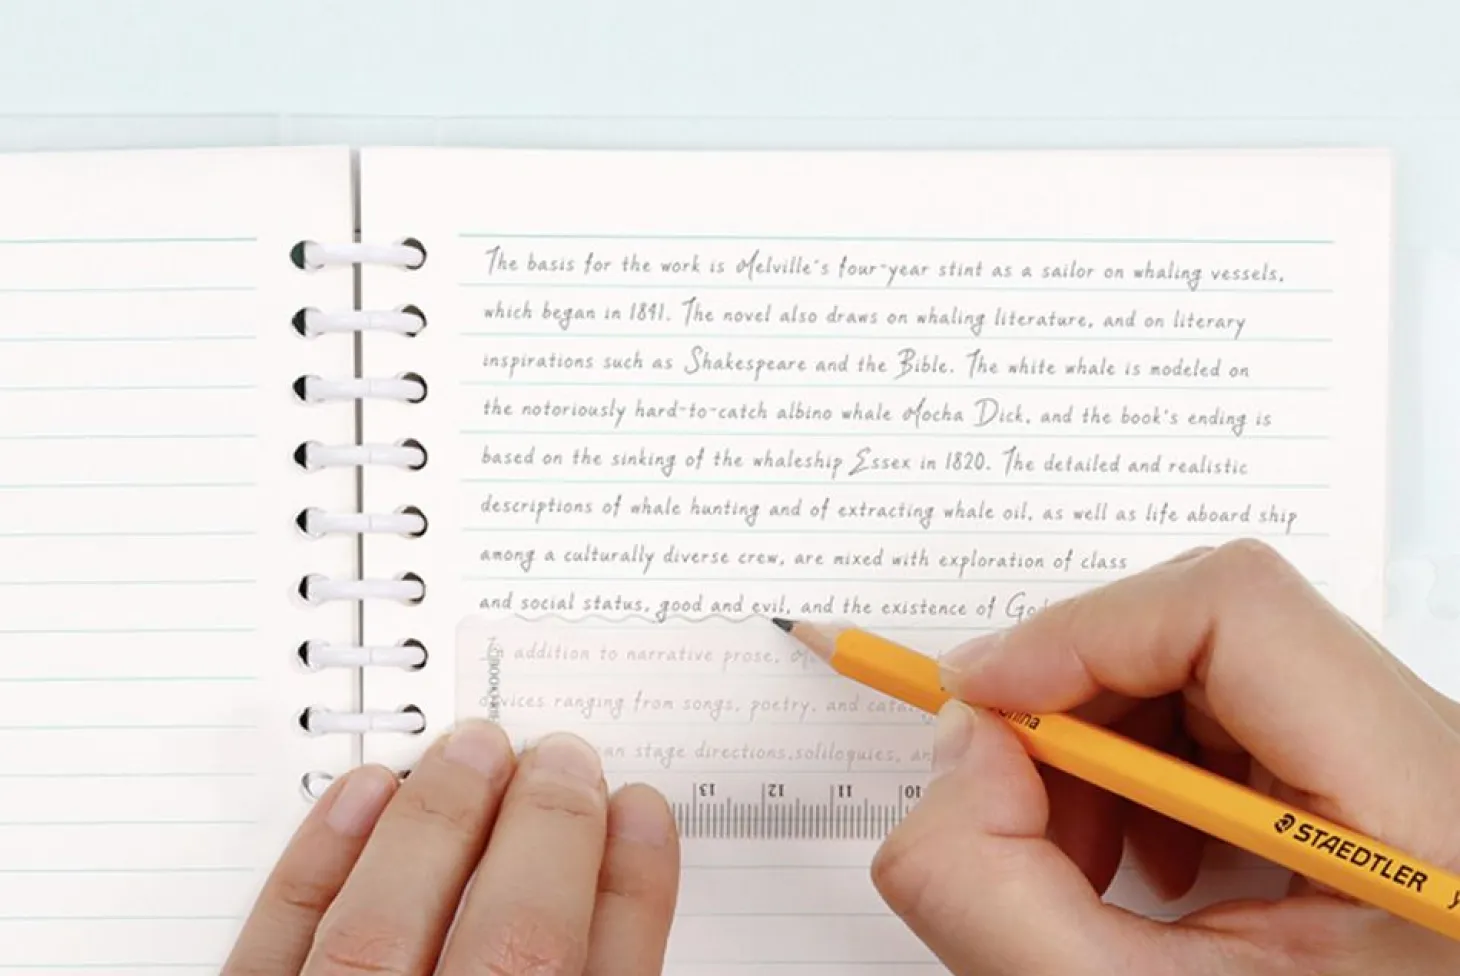 The basis for the work is Melville's four-year stint as a sailor on whaling vessels,
which began in 1841. The novel also draws on whaling literature, and on literary
inspirations such as Shakespeare and the Bible. The white whale is modeled on
the notoriously hard-to-catch albino whale Mocha Dick, and the book's ending is
based on the sinking of the whaleship Essex in 1820. The detailed and realistic
descriptions of whale hunting and of extracting whale oil, as well as life aboard ship
among a culturally diverse crew, are mixed with exploration of class
and social status, good and evil, and the existence of
addition to narrative prose,
ranging from songs, poetry, and
stage directions, soliloquies,
13 12 11 10
China
STAEDTLER